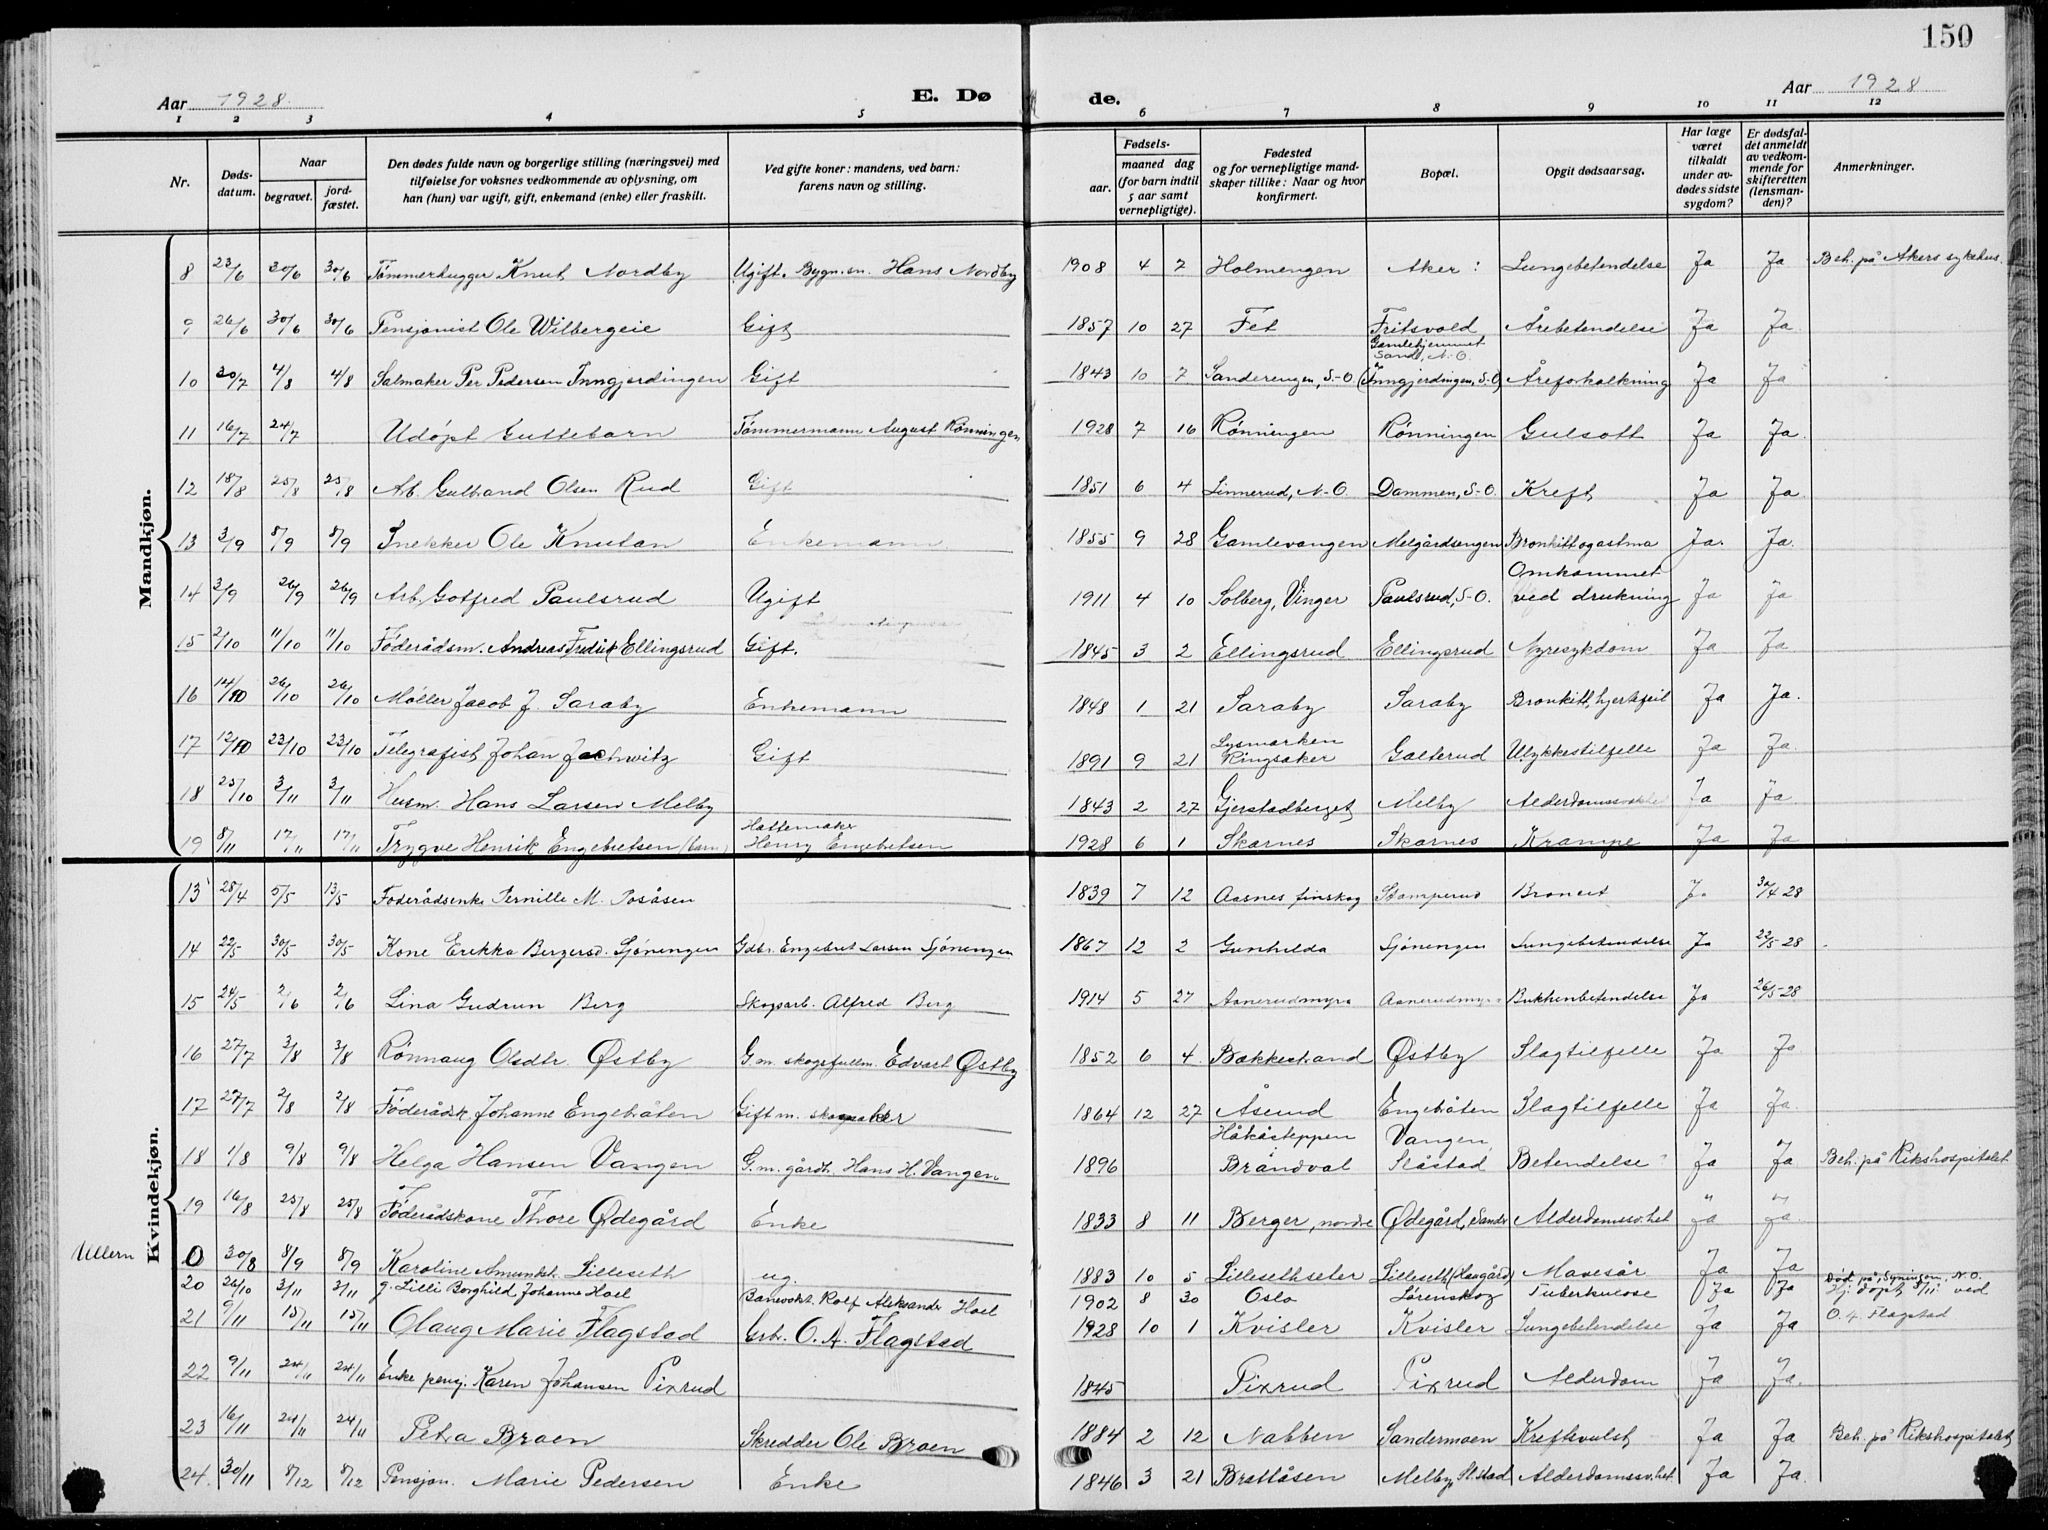 150
Aar 1928. E. Dø de. Aar 1928.
1 2 3 4 5 6 7 8 9 10 11 12
Nr. Døds-datum. Naar begravet. jord-fæstet. Den dødes fulde navn og borgerlige stilling (næringsvei) med tilføielse for voksnes vedkommende av oplysning, om han (hun) var ugift, gift, enkemand (enke) eller fraskilt. Ved gifte koner: mandens, ved barn: farens navn og stilling. Fødsels- aar. maaned dag (for barn indtil 5 aar samt vernepligtige). Fødested og for vernepligtige mand-skaper tillike: Naar og hvor konfirmert. Bopæl. Opgit dødsaarsag. Har læge været tilkaldt under av-dødes sidste sygdom? Er dødsfal-det anmeldt av vedkom-mende for skifteretten (lensman-den)? Anmerkninger.
Mandkjøn.
8 23/6 30/6 30/6 Tømmerhugger Knut Nordby Ugift. Bygn.sn. Hans Nordby 1908 4 7 Holmengen Aker: Lungebetendelse Ja Ja Beh. på Akers sykehus.
9 26/6 30/6 30/6 Pensjonist Ole Wilbergeie Gift 1857 10 27 Fet Fritsvold Årebetendelse Ja Ja
Gamlehjemmet Sand, N.-O.
10 30/7 4/8 4/8 Salmaker Per Pedersen Inngjerdingen Gift 1843 10 7 Sanderengen, S.-O. (Inngjerdingen, S.-O) Åreforkalkning Ja Ja
11 16/7 24/7 Udøpt Guttebarn Tømmermann August Rønningen 1928 7 16 Rønningen Rønningen Gulsott Ja Ja.
12 18/8 25/8 25/8 Arb. Gulbrand Olsen Rud Gift 1851 6 4 Linnerud, N.-O. Dammen, S.-O. Kreft Ja Ja.
13 3/9 8/9 8/9 Snekker Ole Knutan Enkemann 1855 9 28 Gamlevangen Melgårdsengen Bronkitt og astma Ja. Ja.
14 3/9 26/9 26/9 Arb. Gotfred Paulsrud Ugift 1911 4 10 Solberg, Vinger Paulsrud, S-O. Omkommet ved drukning Ja Ja
15 2/10 11/10 11/10 Føderådsm. Andreas Fredrik Ellingsrud Gift. 1845 3 2 Ellingsrud Ellingsrud Nyresykdom Ja Ja.
16 14/10 26/10 26/10 Møller Jacob J. Saraby Enkemann 1848 1 21 Saraby Saraby Bronkitt, hjertefeil Ja Ja.
17 12/10 23/10 23/10 Telegrafist Johan Jachwitz Gift 1891 9 21 Lysmarken Ringsaker Galterud Ulykkestilfelle Ja Ja.
18 25/10 2/11 2/11 Husm. Hans Larsen Melby 1843 2 27 Gjerstadberget Melby Alderdomssvakhet Ja Ja.
19 8/11 17/11 17/11 Trygve Henrik Engebretsen (barn) Hattemaker Henry Engebretsen 1928 6 1 Skarnes Skarnes Krampe Ja Ja
Kvindekjøn.
13 28/4 5/5 13/5 Føderådsenke Pernille M. Posåsen 1839 7 12 Aasnes finskog Stamperud Bronkit Ja 30/4-28
14 22/5 30/5 30/5 Kone Erikka Bergersd. Sjøningen Gdbr. Engebret Larsen Sjøningen 1867 12 2 Gunhilda Sjøningen Lungebetendelse Ja 22/5-28
15 24/5 2/6 2/6 Lina Gudrun Berg Skogsarb. Alfred Berg 1914 5 27 Aanerudmyra Aanerudmyra Bukhinbetendelse Ja 26/5-28
16 27/7 3/8 3/8 Rønnaug Olsdtr. Østby G.m. skogsfullm. Edvart Østby 1852 6 4 Bakkestrand Østby Slagtilfelle Ja Ja
17 27/7 2/8 2/8 Føderådsk. Johanne Engebråten Gift m. 1864 12 27 Åserud Engebråten Slagtilfelle Ja Ja.
18 1/8 9/8 9/8 Helga Hansen Vangen G.m. gårdb. Hans H. Vangen 1896 Håkåsteppen Brandval Vangen, Slåstad Betendelse Ja Ja Beh. på Rikshospitalet
19 16/8 25/8 25/8 Føderådskone Thore Ødegård Enke 1833 8 11 Berger, nordre Ødegård, Sander Alderdomssv.het Ja Ja.
Ullern 0 30/8 8/9 8/9 Karoline Amundst. Lilleseth ug. 1883 10 5 Lillesethseter Lilleseth (Haagård) Mavesår Ja Ja
20 26/10 3/11 3/11 g. Lilli Borghild Johanne Hoel Banevokt. Rolf Aleksander Hoel 1902 8 30 Oslo Lørenskog Tuberkulose Ja Ja Død på, Syningom, N.O.
21 9/11 15/11 15/11 Olaug Marie Flagstad Grb. O. A. Flagstad 1928 10 1 Kvisler Kvisler Lungebetendelse Ja Ja Hj. døpt 8/11 ved O. A. Flagstad
22 9/11 24/11 24/11 Enke pensj. Karen Johansen Pixrud 1845 Pixrud Pixrud Alderdom Ja Ja
23 16/11 24/11 24/11 Petra Braen Skredder Ole Braen 1884 2 12 Nabben Sandermoen Kreftsvulst Ja Ja Beh. på Rikshospitalet
24. 30/11 8/12 8/12 Pensjon. Marie Pedersen Enke 1846 3 21 Brattåsen Melby, Sl.stad Alderdomssv.het Ja Ja.